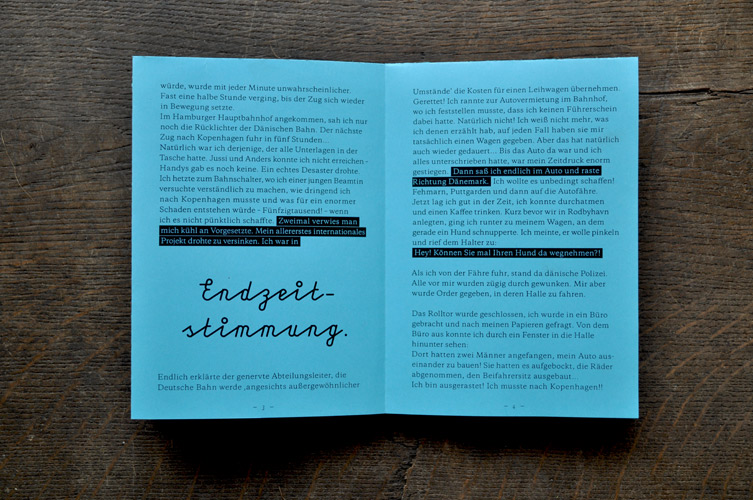 würde, wurde mit jeder Minute unwahrscheinlicher.
Fast eine halbe Stunde verging, bis der Zug sich wieder
in Bewegung setzte.
Im Hamburger Hauptbahnhof angekommen, sah ich nur
noch die Rücklichter der Dänischen Bahn. Der nächste
Zug nach Kopenhagen fuhr in fünf Stunden..
Natürlich war ich derjenige, der alle Unterlagen in der
Tasche hatte. Jussi und Anders konnte ich nicht erreichen -
Handys gab es noch keine. Ein echtes Desaster drohte.
Ich hetzte zum Bahnschalter, wo ich einer jungen Beamtin
versuchte verständlich zu machen, wie dringend ich
nach Kopenhagen musste und was für ein enormer
Schaden entstehen würde - Fünfzigtausend! - wenn
ich es nicht pünktlich schaffte. Zweimal verwies man
mich kühl an Vorgesetzte. Mein allererstes internationales
Projekt drohte zu versinken. Ich war in
Endzeit-
stimmung.
Endlich erklärte der genervte Abteilungsleiter, die
Deutsche Bahn werde ‚angesichts außergewöhnlicher
- 3 -
Umstände' die Kosten für einen Leihwagen übernehmen.
Gerettet! Ich rannte zur Autovermietung im Bahnhof,
wo ich feststellen musste, dass ich keinen Führerschein
dabei hatte. Natürlich nicht! Ich weiß nicht mehr, was
ich denen erzählt hab, auf jeden Fall haben sie mir
tatsächlich einen Wagen gegeben. Aber das hat natürlich
auch wieder gedauert... Bis das Auto da war und ich
alles unterschrieben hatte, war mein Zeitdruck enorm
gestiegen. Dann saß ich endlich im Auto und raste
Richtung Dänemark. Ich wollte es unbedingt schaffen!
Fehmarn, Puttgarden und dann auf die Autofähre.
Jetzt lag ich gut in der Zeit, ich konnte durchatmen
und einen Kaffee trinken. Kurz bevor wir in Rodbyhavn
anlegten, ging ich runter zu meinem Wagen, an dem
gerade ein Hund schnupperte. Ich meinte, er wolle pinkeln
und rief dem Halter zu:
Hey! Können Sie mal Ihren Hund da wegnehmen?!
Als ich von der Fähre fuhr, stand da dänische Polizei.
Alle vor mir wurden zügig durch gewunken. Mir aber
wurde Order gegeben, in deren Halle zu fahren.
Das Rolltor wurde geschlossen, ich wurde in ein Büro
gebracht und nach meinen Papieren gefragt. Von dem
Büro aus konnte ich durch ein Fenster in die Halle
hinunter sehen:
Dort hatten zwei Männer angefangen, mein Auto aus-
einander zu bauen! Sie hatten es aufgebockt, die Räder
abgenommen, den Beifahrersitz ausgebaut..
Ich bin ausgerastet! Ich musste nach Kopenhagen!!
- 4 -